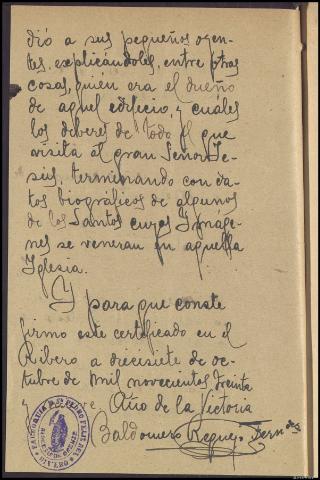 dió a sus pequeños oyen-
tes, explicándoles, entre otras
cosas, quién era el dueño
de aquel edificio, y cuáles
los deberes de todo el que
visita al gran Señor Je-
sús, terminando con da-
tos biográficos de algunos
de los Santos cuyas Imáge-
nes se veneran en aquella
Iglesia.
Y para que conste
firmo este certificado en el
Ribero a diecisiete de oc-
tubre de mil novecientos treinta
y Año de la Victoria
Baldomero Requejo Ferndez